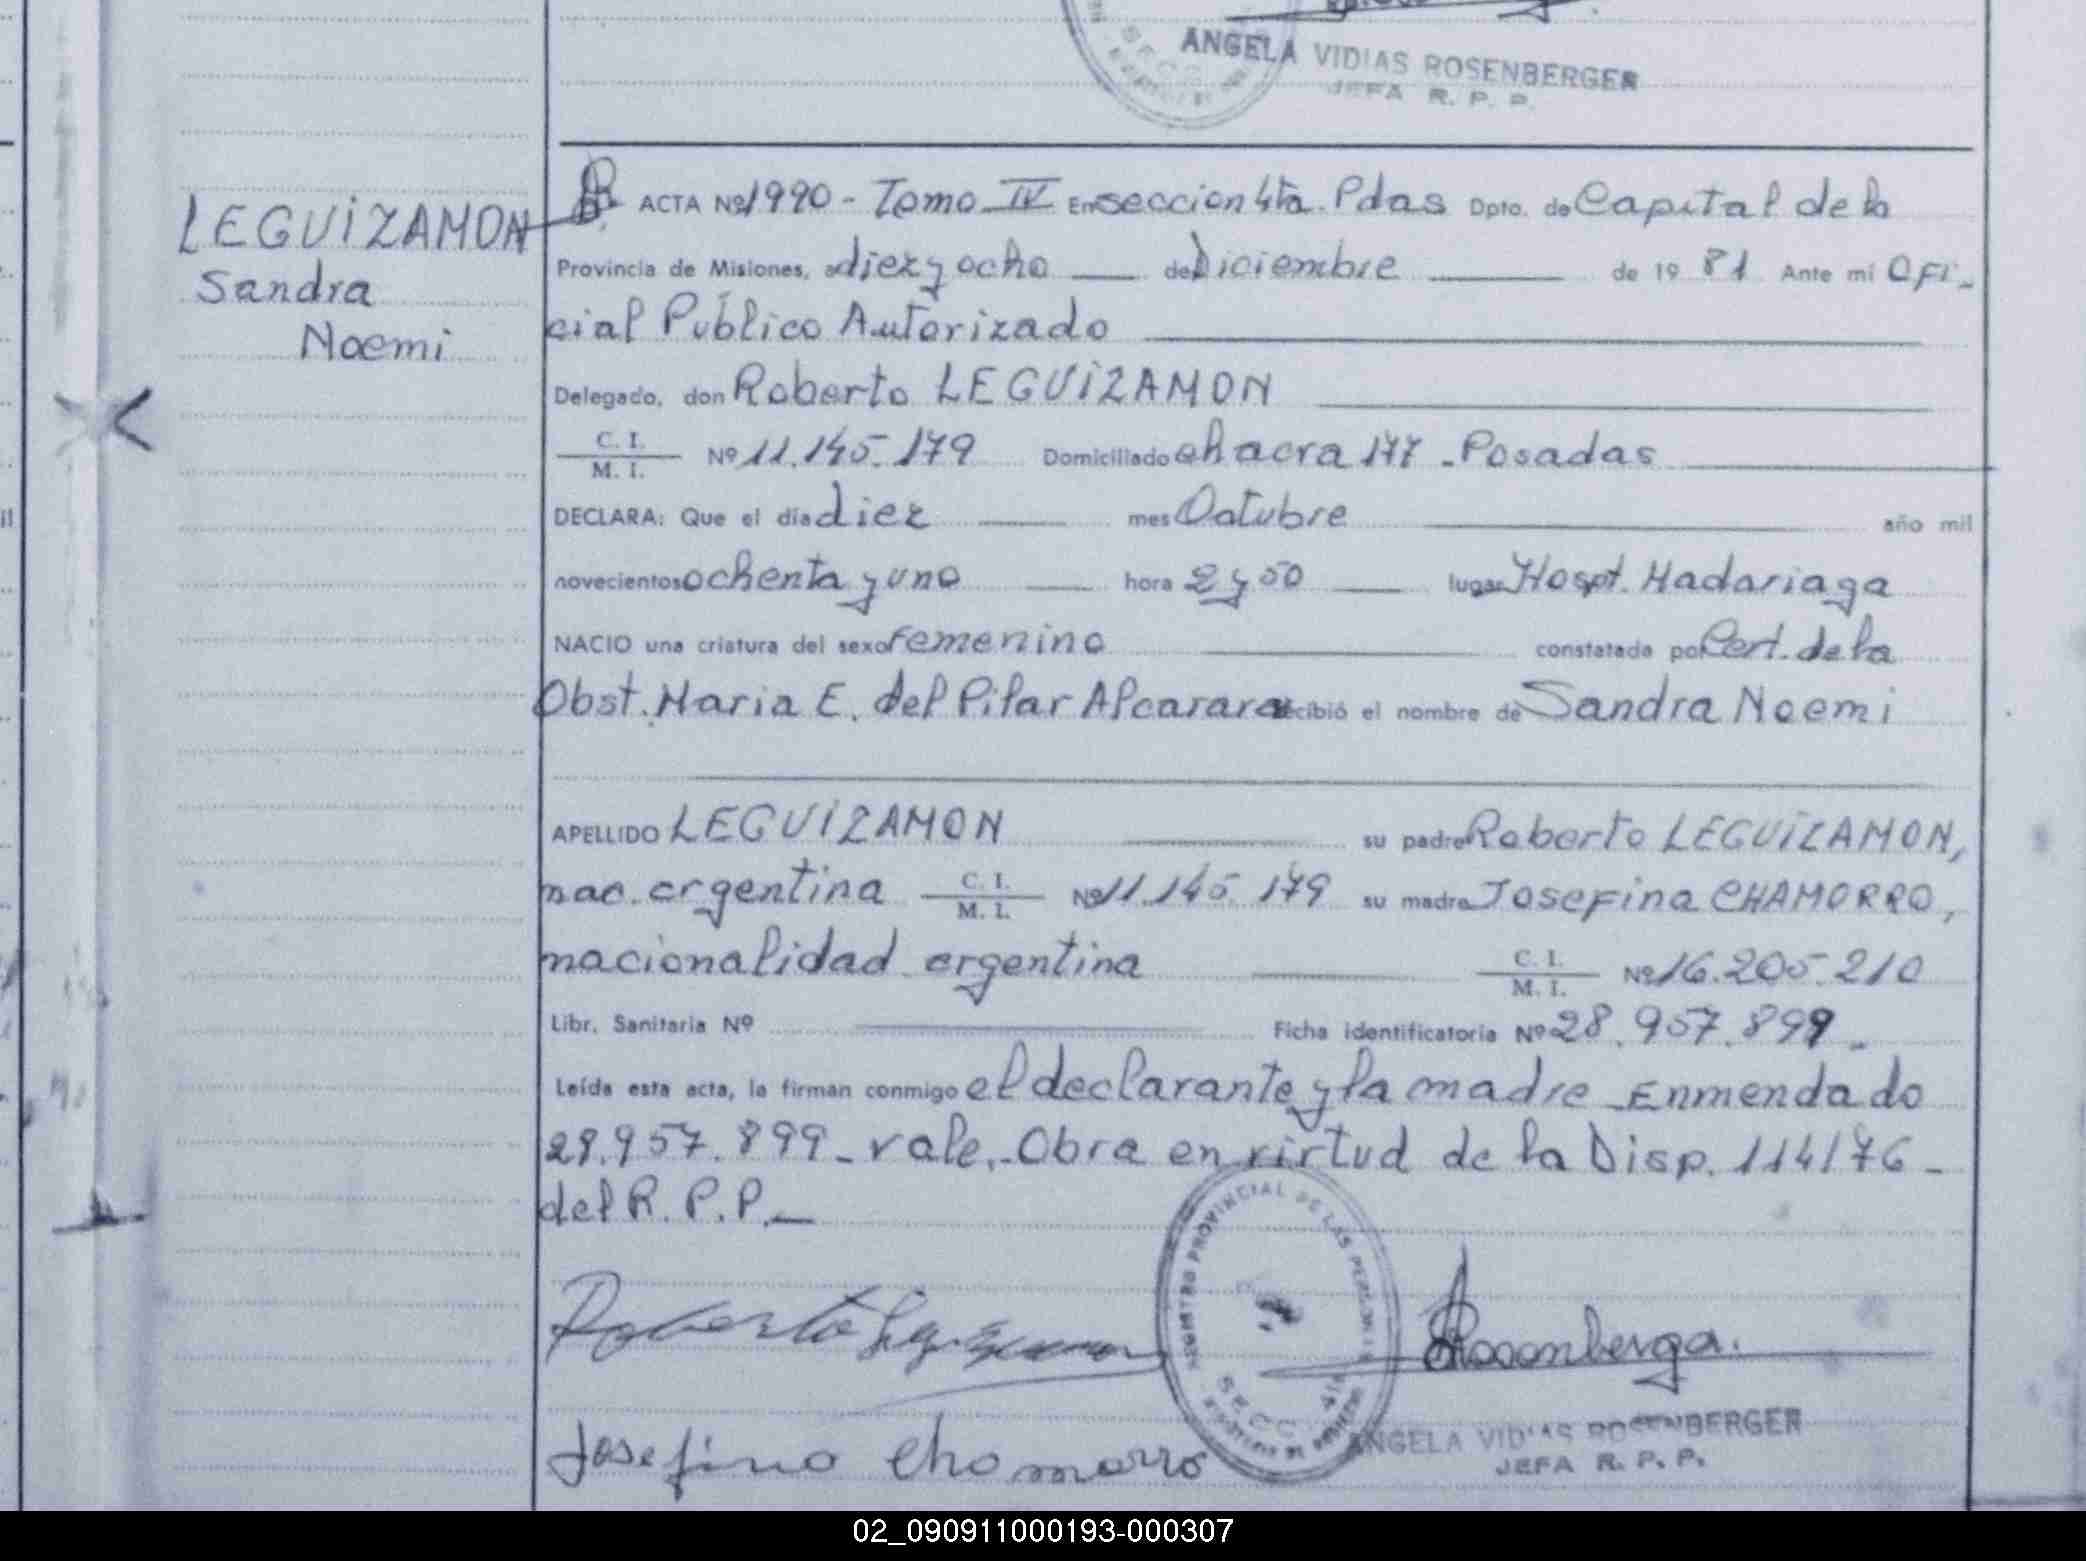 ANGELA VIDIAS ROSENBERGER
JEFA R. P. P.
LEGUIZAMON
Sandra
Noemi
ACTA Nº 1990 - Tomo IV En seccion 4ta. Pdas Dpto. de Capital de la
Provincia de Misiones, a diez y ocho de Diciembre de 19 81 Ante mí Ofi-
cial Público Autorizado
Delegado, don Roberto LEGUIZAMON
C. I.
M. I. Nº 11.145.179 Domiciliado chacra 177 - Posadas
DECLARA: Que el día diez mes Octubre año mil
novecientos ochenta y uno hora 2 y 50 lugar Hospt. Madariaga
NACIO una criatura del sexo femenino constatado por Cert. de la
Obst. Maria E. del Pilar Alcarara recibió el nombre de Sandra Noemi
APELLIDO LEGUIZAMON su padre Roberto LEGUIZAMON,
nac. argentina C. I. M. I. Nº 11.145.179 su madre Josefina CHAMORRO,
nacionalidad argentina C. I. M. I. Nº 16.205.210
Libr. Sanitaria Nº Ficha identificatoria Nº 28.957.899 -
Leída esta acta, la firman conmigo el declarante y la madre - Enmendado
28.957.899 - vale. - Obra en virtud de la Disp. 114/76 -
del R. P. P. -
REGISTRO PROVINCIAL DE LAS PERSONAS
SECC. 4ta
Roberto Leguizamon
Rosenberga.
Josefina Chamorro
ANGELA VIDIAS ROSENBERGER
JEFA R. P. P.
02_090911000193-000307